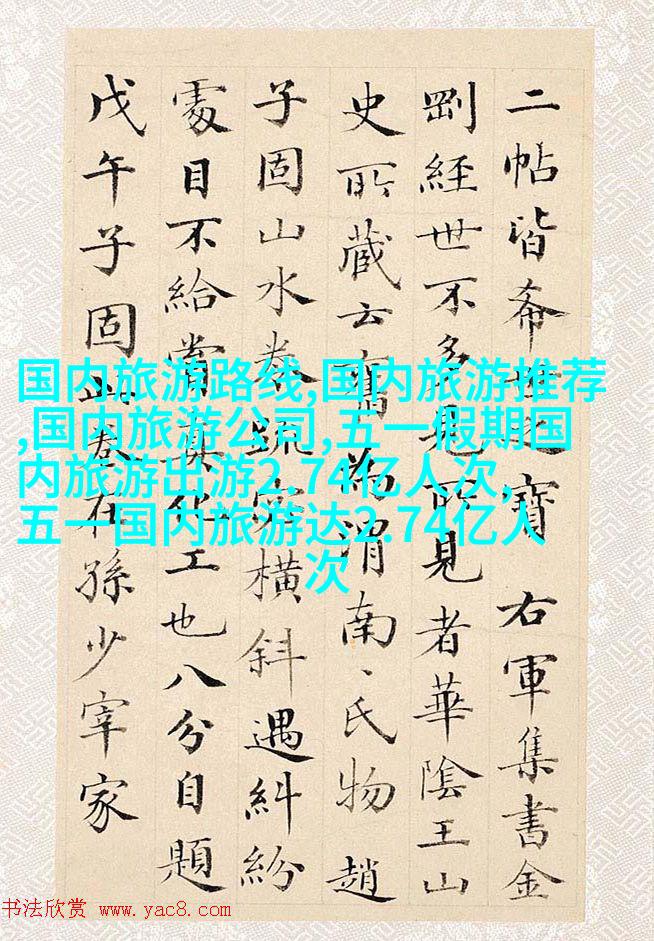 二帖皆希世之寶 右軍集書金
剛經世不多見所見者華陰王山
史所藏云舊為渭南、氏物趙
子固山水卷疏密橫斜遇糾紛
處目不給賞真化工也八分自題
戊午子固此卷在孫少宰家
国内旅游路线,国内旅游推荐
,国内旅游公司,五一假期国
内旅游出游2.74亿人次,
五一国内旅游达2.74亿人
次
书法欣赏 www.yac8.com